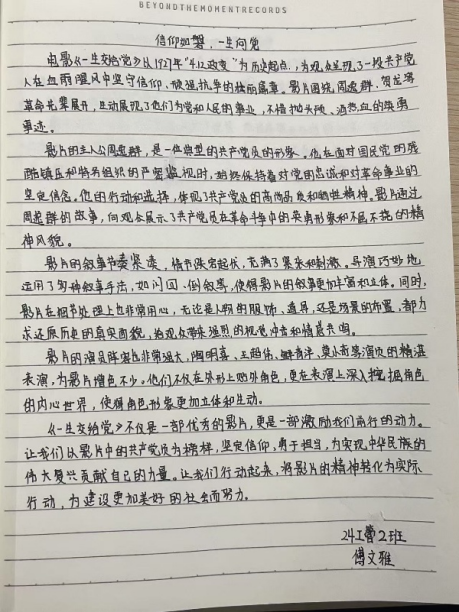 BEYONDTHEMOMENTRECORDS
信仰如磐，一生向党
电影《一生交给党》以1927年“4.12政变”为历史起点，为观众呈现了一段共产党
人在血雨腥风中坚守信仰，顽强抗争的壮丽篇章。影片围绕周逸群、贺龙等
革命先辈展开，生动展现了他们为党和人民的事业，不惜抛头颅、洒热血的英勇
事迹。
影片的主人公周逸群，是一位典型的共产党员的形象。他在面对国民党的残
酷镇压和特务组织的严密监视时，始终保持着对党的忠诚和对革命事业的
坚定信念。他的行动和选择，体现了共产党员的高尚品质和牺牲精神。影片通过
周逸群的故事，向观众展示了共产党员在革命斗争中的英勇形象和不屈不挠的精
神风貌。
影片的叙事节奏紧凑，情节跌宕起伏，充满了紧张和刺激。导演巧妙地
运用了多种叙事手法，如闪回、倒叙等，使得影片的叙事更加丰富和立体。同时，
影片在细节处理上也非常用心，无论是人物的服饰、道具，还是场景的布置，都力
求还原历史的真实面貌，为观众带来强烈的视觉冲击和情感共鸣。
影片的演员阵容也非常强大，陶明喜、王超伟、鲜有洋、莫小奇等演员的精湛
表演，为影片增色不少。他们不仅在外形上贴外角色，更在表演上深入挖掘角色
的内心世界，使得角色形象更加立体和生动。
《一生交给党》不仅是一部优秀的影片，更是一部激励我们前行的动力。
让我们从影片中的共产党员为榜样，坚定信仰，勇于担当，为实现中华民族的
伟大复兴贡献自己的力量。让我们行动起来，将影片的精神转化为实际
行动，为建设更加美好的社会而努力。
24工管2班
傅文雅